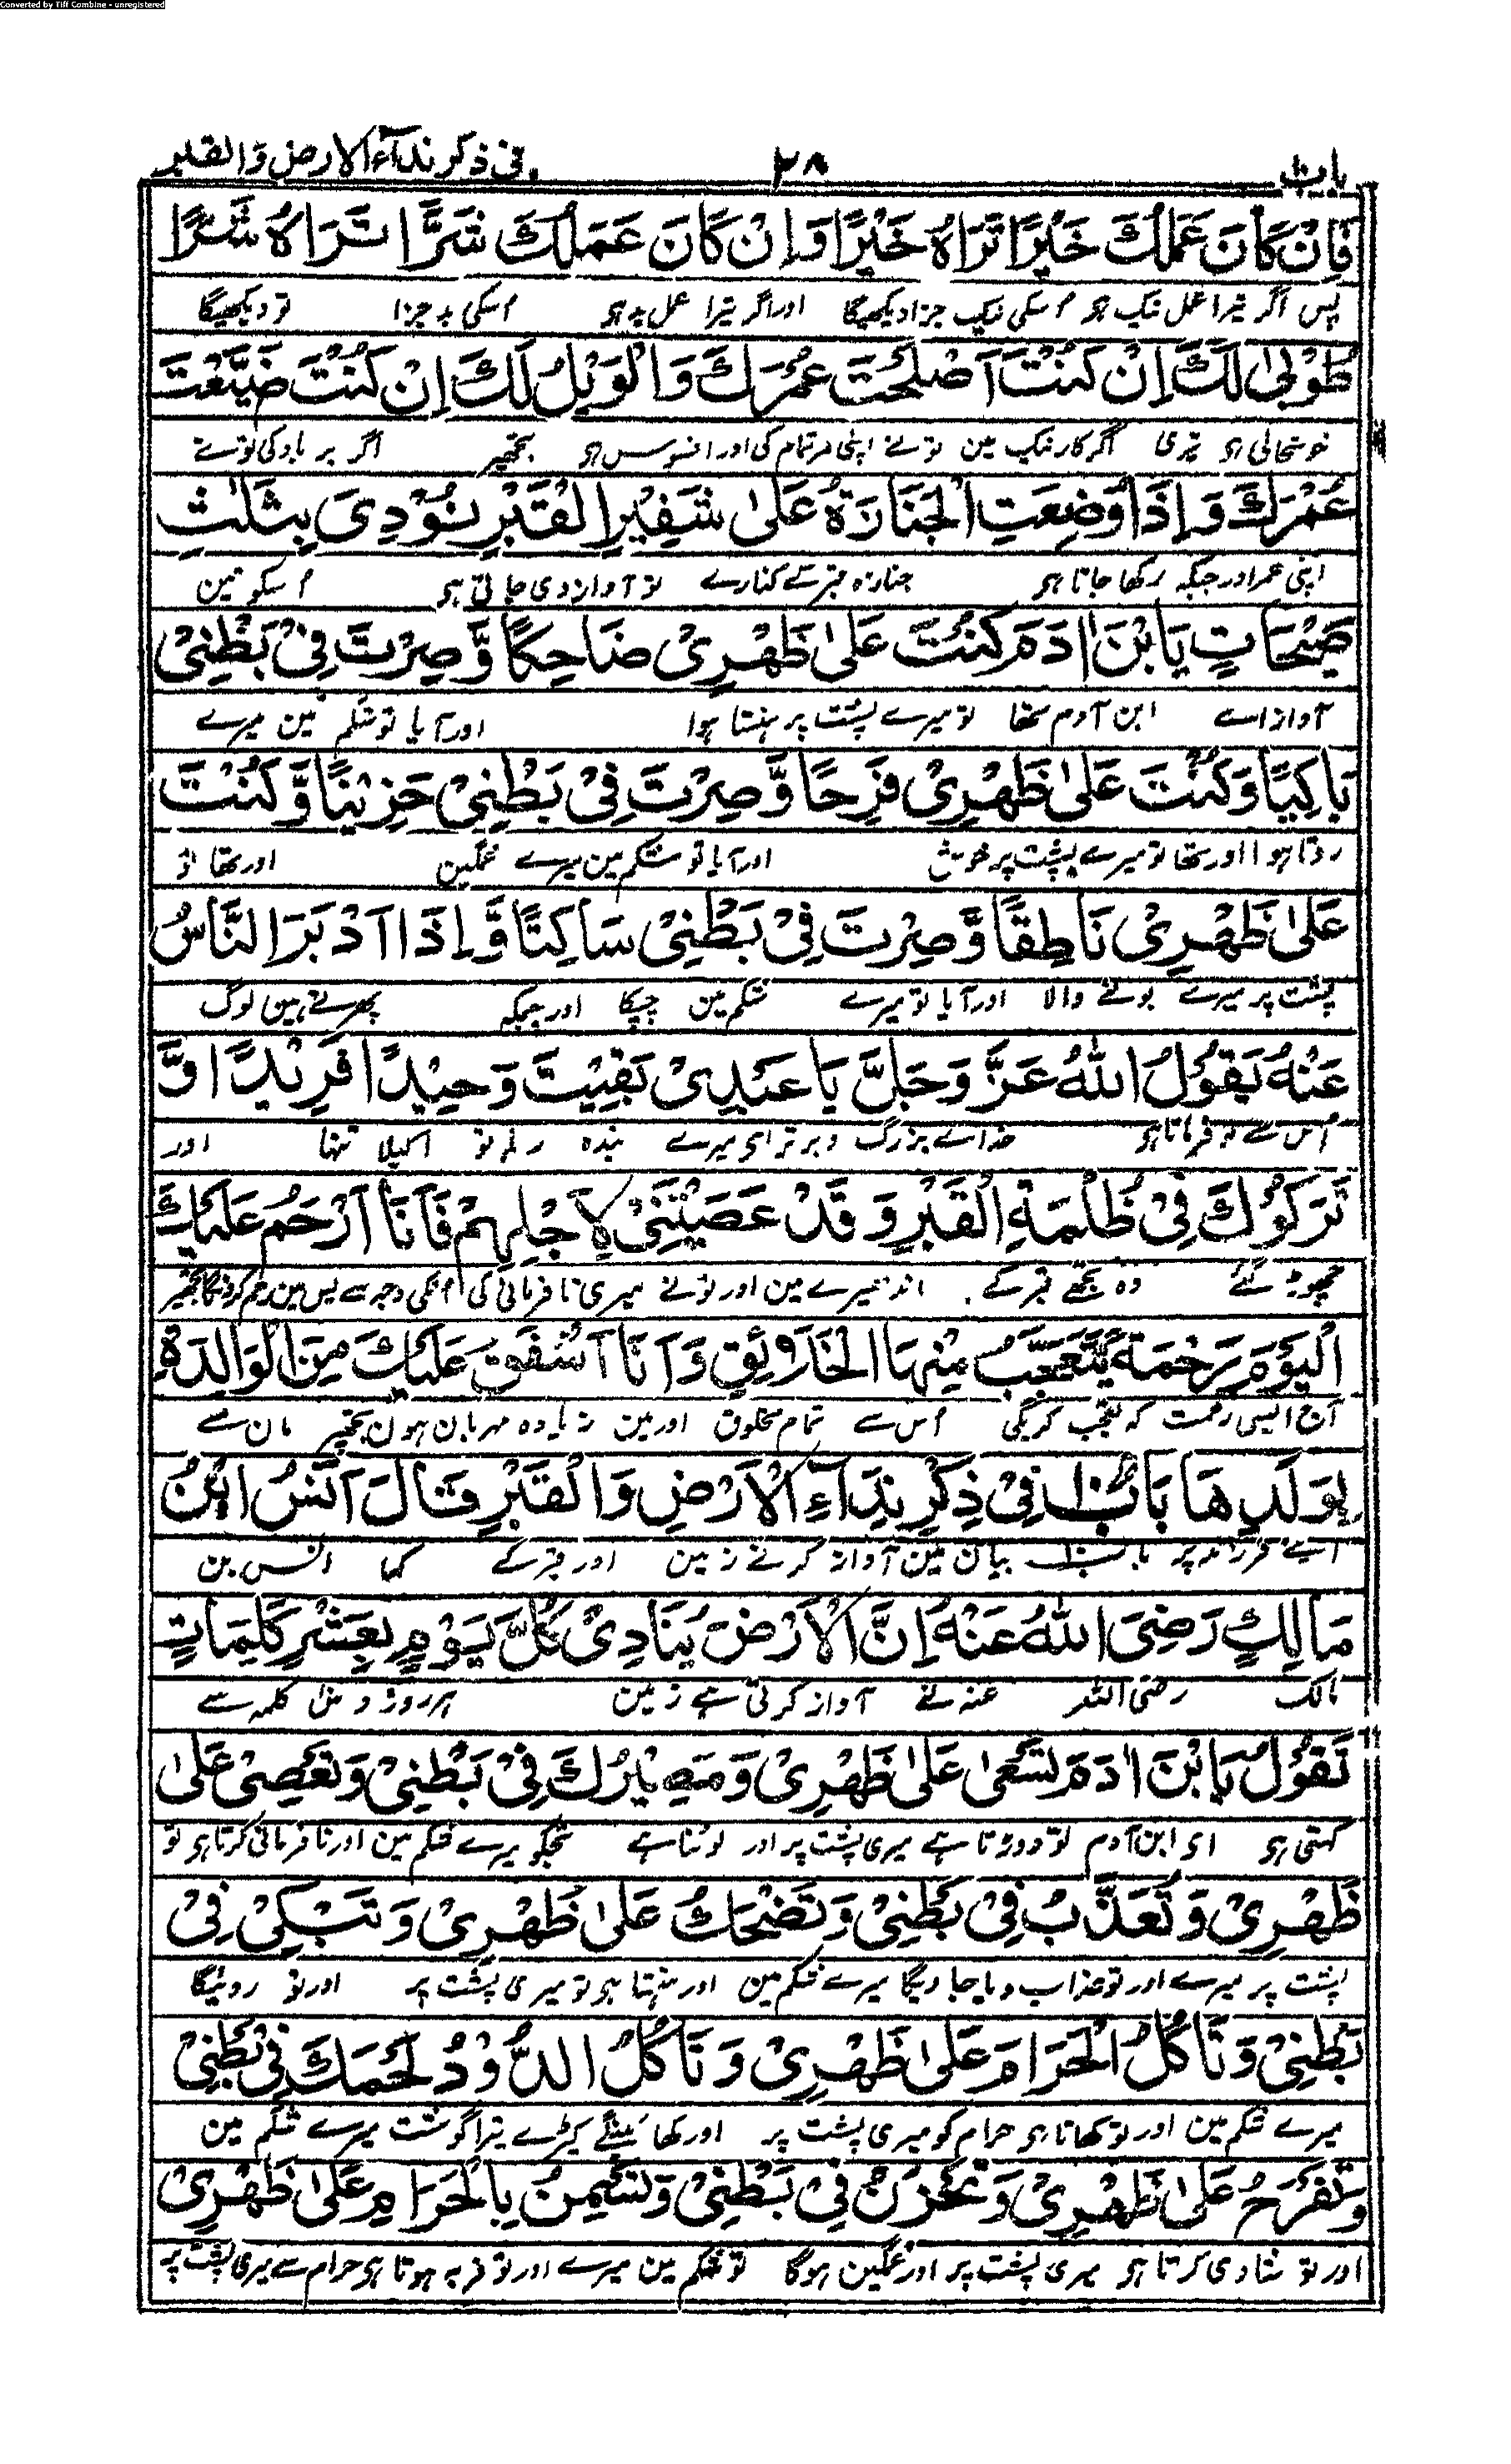 Converted by Tiff Combine - unregistered
باب ۱۰ ۲۸ فی ذکر ندآء الارض والقبر
فَاِنْ كَانَ عَمَلُكَ خَيْرًا تَرَاهُ خَيْرًا وَاِنْ كَانَ عَمَلُكَ شَرًّا تَرَاهُ شَرًّا
پس اگر تیرا عمل نیک ہو اُسکی نیک جزا دیکھیگا اور اگر تیرا عمل بد ہو اُسکی بد جزا تو دیکھیگا
طُوْبٰى لَكَ اِنْ كُنْتَ اَصْلَحْتَ عُمُرَكَ وَالْوَيْلُ لَكَ اِنْ كُنْتَ ضَيَّعْتَ
خوشحالی ہو تیری اگر کار نیک مین تونے اپنی عمر تمام کی اور افسوس ہو تجھپر اگر برباد کی تونے
عُمْرَكَ وَاِذَا وُضِعَتِ الْجَنَازَةُ عَلٰى شَفِيْرِ الْقَبْرِ نُوْدِىَ بِثَلٰثِ
اپنی عمر اور جبکہ رکھا جاتا ہو جنازہ قبر کے کنارے تو آواز دی جاتی ہو اُسکو تین
صَيْحَاتٍ يَا بْنَ اٰدَمَ كُنْتَ عَلٰى ظَهْرِىْ ضَاحِكًا وَّصِرْتَ فِىْ بَطْنِىْ
آواز اے ابن آدم تھا تو میرے پشت پر ہنستا ہوا اور آیا تو شکم مین میرے
بَاكِيًا وَكُنْتَ عَلٰى ظَهْرِىْ فَرِحًا وَّصِرْتَ فِىْ بَطْنِىْ حَزِيْنًا وَّكُنْتَ
روتا ہوا اور تھا تو میرے پشت پر خوش اور آیا تو شکم مین میرے غمگین اور تھا تو
عَلٰى ظَهْرِىْ نَاطِقًا وَّصِرْتَ فِىْ بَطْنِىْ سَاكِتًا وَّاِذَا اَدْبَرَ النَّاسُ
پشت پر میرے بولنے والا اور آیا تو میرے شکم مین چپکا اور جبکہ پھرتے ہین لوگ
عَنْهُ يَقُوْلُ اللّٰهُ عَزَّ وَجَلَّ يَا عَبْدِىْ بَقِيْتَ وَحِيْدًا فَرِيْدًا وَّ
اُس سے تو فرماتا ہو خداے بزرگ و برتر ای میرے بندہ رہا تو اکیلا تنہا اور
تَرَكُوْكَ فِىْ ظُلْمَةِ الْقَبْرِ وَقَدْ عَصَيْتَنِىْ لِاَجْلِهِمْ فَاَنَا اَرْحَمُ عَلَيْكَ
چھوڑ گئے وہ تجھے قبر کے اندھیرے مین اور تونے میری نافرمانی کی اُنکی وجہ سے پس مین رحم کرونگا تجھپر
اَلْيَوْمَ رَحْمَةً يَّتَعَجَّبُ مِنْهَا الْخَلَآئِقُ وَاَنَا اَشْفَقُ عَلَيْكَ مِنَ الْوَالِدَةِ
آج ایسی رحمت کہ تعجب کریگی اُس سے تمام مخلوق اور مین زیادہ مہربان ہون تجھپر مان سے
بِوَلَدِهَا بَابٌ ۱۰ فِىْ ذِكْرِ نِدَآءِ الْاَرْضِ وَالْقَبْرِ قَالَ اَنَسُ ابْنُ
اپنے فرزند پر باب ۱۰ بیان مین آواز کرنے زمین اور قبر کے کہا انس بن
مَالِكٍ رَضِىَ اللّٰهُ عَنْهُ اِنَّ الْاَرْضَ يُنَادِىْ كُلَّ يَوْمٍ بِعَشْرِ كَلِمَاتٍ
مالک رضی اللہ عنہ نے آواز کرتی ہے زمین ہر روز دس کلمہ سے
تَقُوْلُ يَا بْنَ اٰدَمَ تَسْعٰى عَلٰى ظَهْرِىْ وَمَصِيْرُكَ فِىْ بَطْنِىْ وَتَعْصِىْ عَلٰى
کہتی ہو ای ابن آدم تو دوڑتا ہے میری پشت پر اور لوٹنا ہے تجکو میرے شکم مین اور نافرمانی کرتا ہو تو
ظَهْرِىْ وَتُعَذَّبُ فِىْ بَطْنِىْ وَتَضْحَكُ عَلٰى ظَهْرِىْ وَتَبْكِىْ فِىْ
پشت پر میرے اور تو عذاب دیا جاویگا میرے شکم مین اور ہنستا ہو تو میری پشت پر اور تو روئیگا
بَطْنِىْ وَتَاْكُلُ الْحَرَامَ عَلٰى ظَهْرِىْ وَتَاْكُلُ الدُّوْدُ لَحْمَكَ فِىْ بَطْنِىْ
میرے شکم مین اور تو کھاتا ہو حرام کو میری پشت پر اور کھائینگے کیڑے تیرا گوشت میرے شکم مین
وَتَفْرَحُ عَلٰى ظَهْرِىْ وَتَحْزَنُ فِىْ بَطْنِىْ وَتَسْمَنُ بِالْحَرَامِ عَلٰى ظَهْرِىْ
اور تو شادی کرتا ہو میری پشت پر اور غمگین ہوگا تو شکم مین میرے اور تو فربہ ہوتا ہو حرام سے میری پشت پر